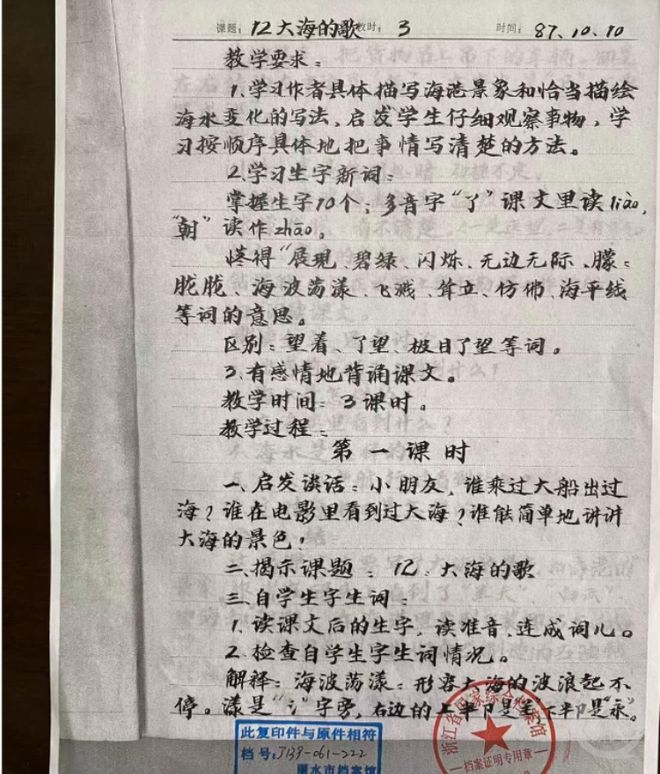 课题：12大海的歌教时：3 时间：87.10.10
教学要求：
1.学习作者具体描写海港景象和恰当描绘
海水变化的写法，启发学生仔细观察事物，学
习按顺序具体地把事情写清楚的方法。
2.学习生字新词：
掌握生字10个；多音字“了”课文里读liào，
“朝”读作zhāo。
懂得“展现、碧绿、闪烁、无边无际、朦
胧胧、海波荡漾、飞溅、耸立、仿佛、海平线
等词的意思。
区别：望着、了望、极目了望等词。
3.有感情地背诵课文。
教学时间：3课时。
教学过程：
第一课时
一、启发谈话：小朋友，谁乘过大船出过
海？谁在电影里看到过大海？谁能简单地讲讲
大海的景色！
二、揭示课题：12、大海的歌
三、自学生字生词：
1.读课文后的生字，读准音，连成词儿。
2.检查自学生字生词情况。
解释：海波荡漾：形容大海的波浪起不
停。漾是“氵”字旁，右边的上半卩是𦍌下半卩是“永”。
此复印件与原件相符
档号：J139-061-222
丽水市档案馆
浙江省国家综合档案馆
档案证明专用章